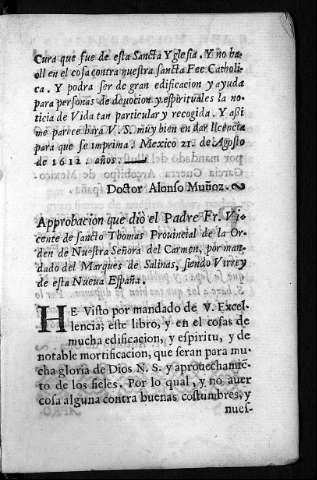 Cura que fue de esta Sancta Yglesia. Y no ha-
ll en el cosa contra nuestra sancta Fee Catholi-
ca. Y podra ser de gran edificacion y ayuda
para personas de deuocion y espirituales la no-
ticia de Vida tan particular y recogida. Y assi
me parece hara V. S. muy bien en dar licencia
para que se imprima. Mexico 21. de Agosto
de 1612. años.
Doctor Alonso Muñoz.
Approbacion que dio el Padre Fr. Vi-
cente de sancto Thomas Prouincial de la Or-
den de Nuestra Señora del Carmen, por man-
dado del Marques de Salinas, siendo Virrey
de esta Nueva España.
HE Visto por mandado de V. Excel-
lencia; este libro, y en el cosas de
mucha edificacion, y espiritu, y de
notable mortificacion, que seran para mu-
cha gloria de Dios N. S. y aprouechamiẽ-
to de los fieles. Por lo qual, y no auer
cosa alguna contra buenas costumbres, y
nues-